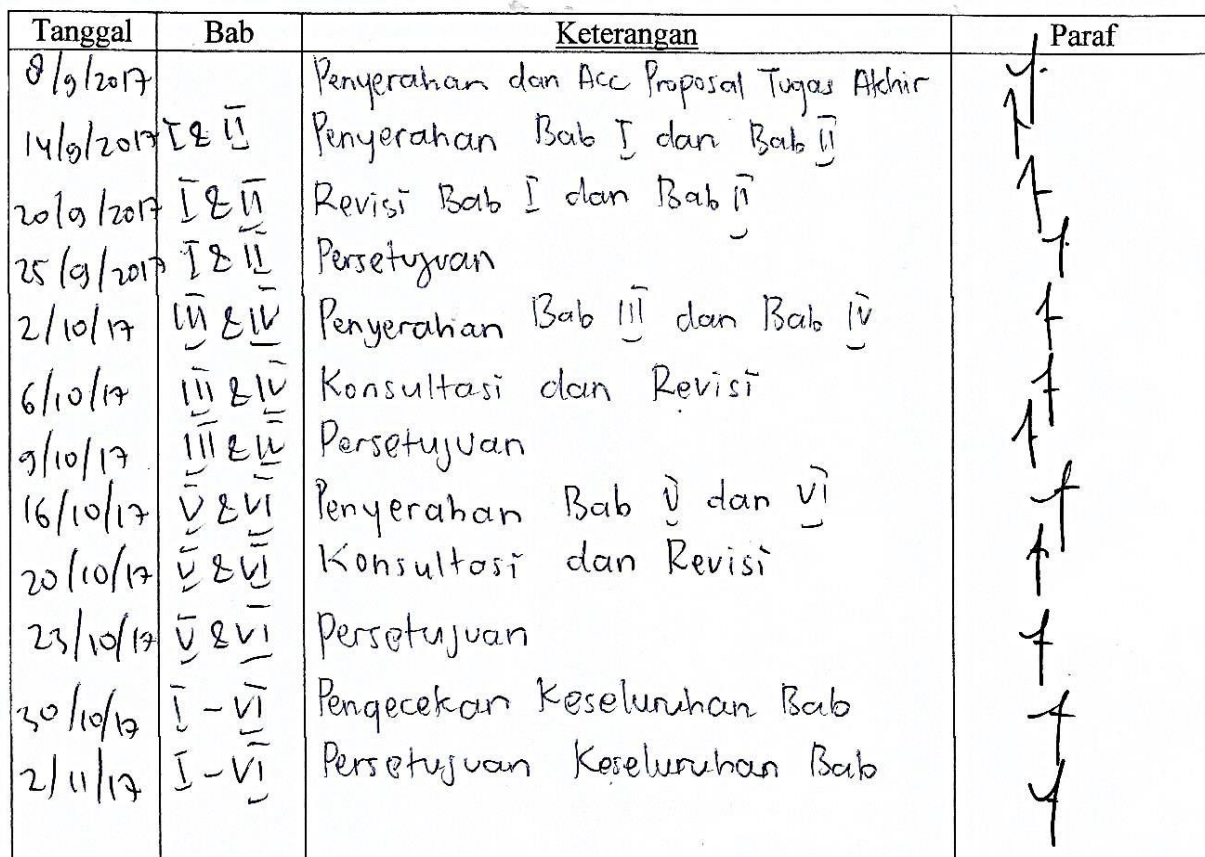 Tanggal Bab Keterangan Paraf
8/9/2017 Penyerahan dan Acc Proposal Tugas Akhir
14/9/2017 I & II Penyerahan Bab I dan Bab II
20/9/2017 I & II Revisi Bab I dan Bab II
25/9/2017 I & II Persetujuan
2/10/17 III & IV Penyerahan Bab III dan Bab IV
6/10/17 III & IV Konsultasi dan Revisi
9/10/17 III & IV Persetujuan
16/10/17 V & VI Penyerahan Bab V dan VI
20/10/17 V & VI Konsultasi dan Revisi
23/10/17 V & VI Persetujuan
30/10/17 I - VI Pengecekan Keseluruhan Bab
2/11/17 I - VI Persetujuan Keseluruhan Bab